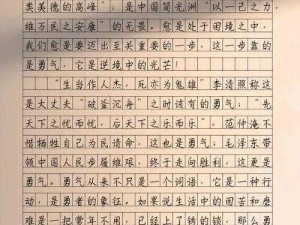 类美德的高峰”；是中国简光洲“以一己之力，
维万民之安康”的无畏。愈是处于困境之中，
我们愈是要迈出至关重要的一步，这一步靠的
是勇气，它是逆境中的光芒！
“生当作人杰，死亦为鬼雄”李清照称这
是大丈夫“破釜沉舟”之时该有的勇气；“先
天下之忧而忧，后天下之乐而乐”，范仲淹不
惜牺牲自己为民请命，也是勇气；毛泽东带
领中国人民步履维艰，终于走向胜利，这更是
勇气。勇气从来不只是一个词语，它是一种行
动，是勇者的象征。如果说生活中的困苦和磨
难是一把常年不用，已经上了锈的锁，那么勇